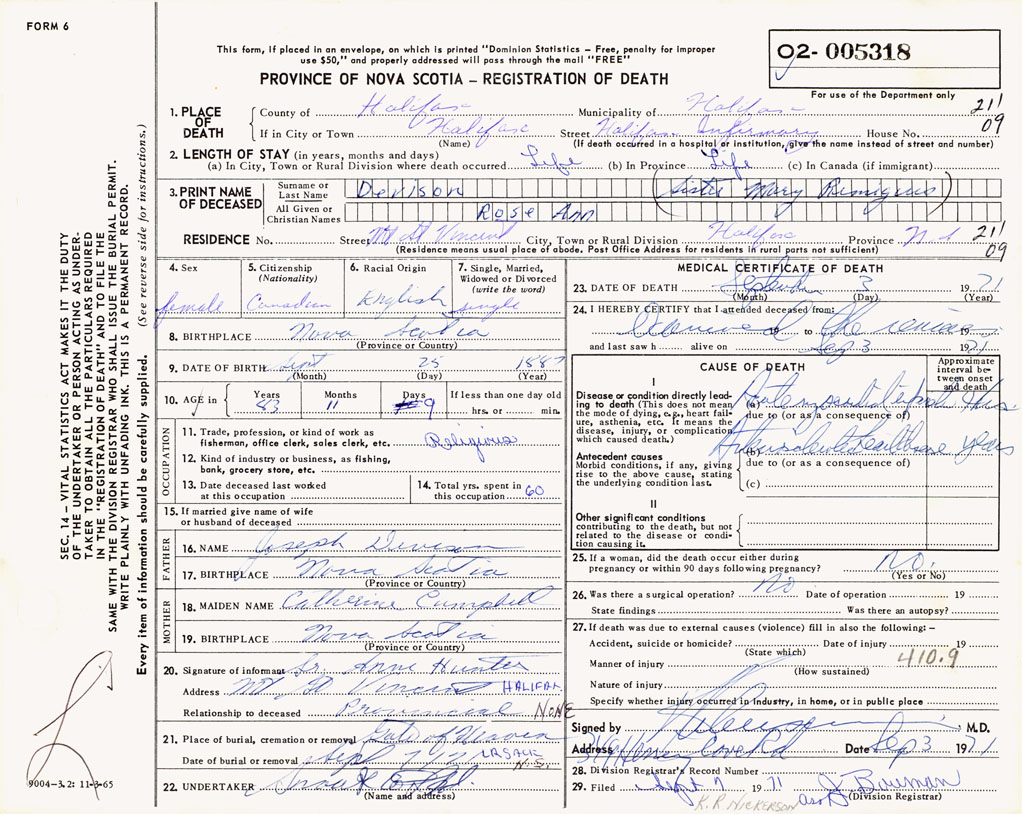 FORM 6
This form, if placed in an envelope, on which is printed "Dominion Statistics – Free, penalty for improper
use $50," and properly addressed will pass through the mail "FREE"
02- 005318
PROVINCE OF NOVA SCOTIA – REGISTRATION OF DEATH
For use of the Department only
1. PLACE OF DEATH
County of Halifax Municipality of Halifax 211
If in City or Town Halifax Street Halifax Infirmary House No. 09
(Name) (If death occurred in a hospital or institution, give the name instead of street and number)
2. LENGTH OF STAY (in years, months and days)
(a) In City, Town or Rural Division where death occurred Life (b) In Province Life (c) In Canada (if immigrant)
3. PRINT NAME OF DECEASED
Surname or Last Name Devison (Sister Mary Remigius)
All Given or Christian Names Rose Ann
RESIDENCE No. Street Mt St Vincent City, Town or Rural Division Halifax Province N.S 211
(Residence means usual place of abode. Post Office Address for residents in rural parts not sufficient) 09
4. Sex female
5. Citizenship (Nationality) Canadian
6. Racial Origin English
7. Single, Married, Widowed or Divorced (write the word) single
8. BIRTHPLACE Nova Scotia
(Province or Country)
9. DATE OF BIRTH Sept 25 1887
(Month) (Day) (Year)
10. AGE in Years 83 Months 11 Days 9 If less than one day old hrs. or min.
OCCUPATION
11. Trade, profession, or kind of work as
fisherman, office clerk, sales clerk, etc. Religious
12. Kind of industry or business, as fishing,
bank, grocery store, etc.
13. Date deceased last worked
at this occupation
14. Total yrs. spent in
this occupation 60
15. If married give name of wife
or husband of deceased
FATHER
16. NAME Joseph Devison
17. BIRTHPLACE Nova Scotia
(Province or Country)
MOTHER
18. MAIDEN NAME Catherine Campbell
19. BIRTHPLACE Nova Scotia
(Province or Country)
20. Signature of informant Sr. Anne Hunter
Address Mt St Vincent HALIFAX
Relationship to deceased Provincial NONE
21. Place of burial, cremation or removal Gate of Heaven
Date of burial or removal Sept 7/71 N.S.
22. UNDERTAKER
(Name and address)
MEDICAL CERTIFICATE OF DEATH
23. DATE OF DEATH September 3 1971
(Month) (Day) (Year)
24. I HEREBY CERTIFY that I attended deceased from:
19 to 19
and last saw h alive on Sep 3 1971
CAUSE OF DEATH
Approximate interval between onset and death
I
Disease or condition directly leading to death (This does not mean
the mode of dying, e.g., heart failure, asthenia, etc. It means the
disease, injury, or complication
which caused death.)
(a)
due to (or as a consequence of)
Antecedent causes
Morbid conditions, if any, giving
rise to the above cause, stating
the underlying condition last.
(b) years
due to (or as a consequence of)
(c)
II
Other significant conditions
contributing to the death, but not
related to the disease or condition causing it.
25. If a woman, did the death occur either during
pregnancy or within 90 days following pregnancy? No.
(Yes or No)
26. Was there a surgical operation? No Date of operation 19
State findings Was there an autopsy?
27. If death was due to external causes (violence) fill in also the following: –
Accident, suicide or homicide? Date of injury 19
(State which) 410.9
Manner of injury
(How sustained)
Nature of injury
Specify whether injury occurred in industry, in home, or in public place
Signed by M.D.
Address Date Sep 3 1971
28. Division Registrar's Record Number
29. Filed Sept 7 1971 J Bowman
(Division Registrar)
K.R. NICKERSON
SEC. 14 – VITAL STATISTICS ACT MAKES IT THE DUTY
OF THE UNDERTAKER OR PERSON ACTING AS UNDER-
TAKER TO OBTAIN ALL THE PARTICULARS REQUIRED
IN THE "REGISTRATION OF DEATH" AND TO FILE THE
SAME WITH THE DIVISION REGISTRAR WHO SHALL ISSUE THE BURIAL PERMIT.
WRITE PLAINLY WITH UNFADING INK. THIS IS A PERMANENT RECORD.
Every item of information should be carefully supplied. (See reverse side for instructions.)
9004–3.2: 11-3-65